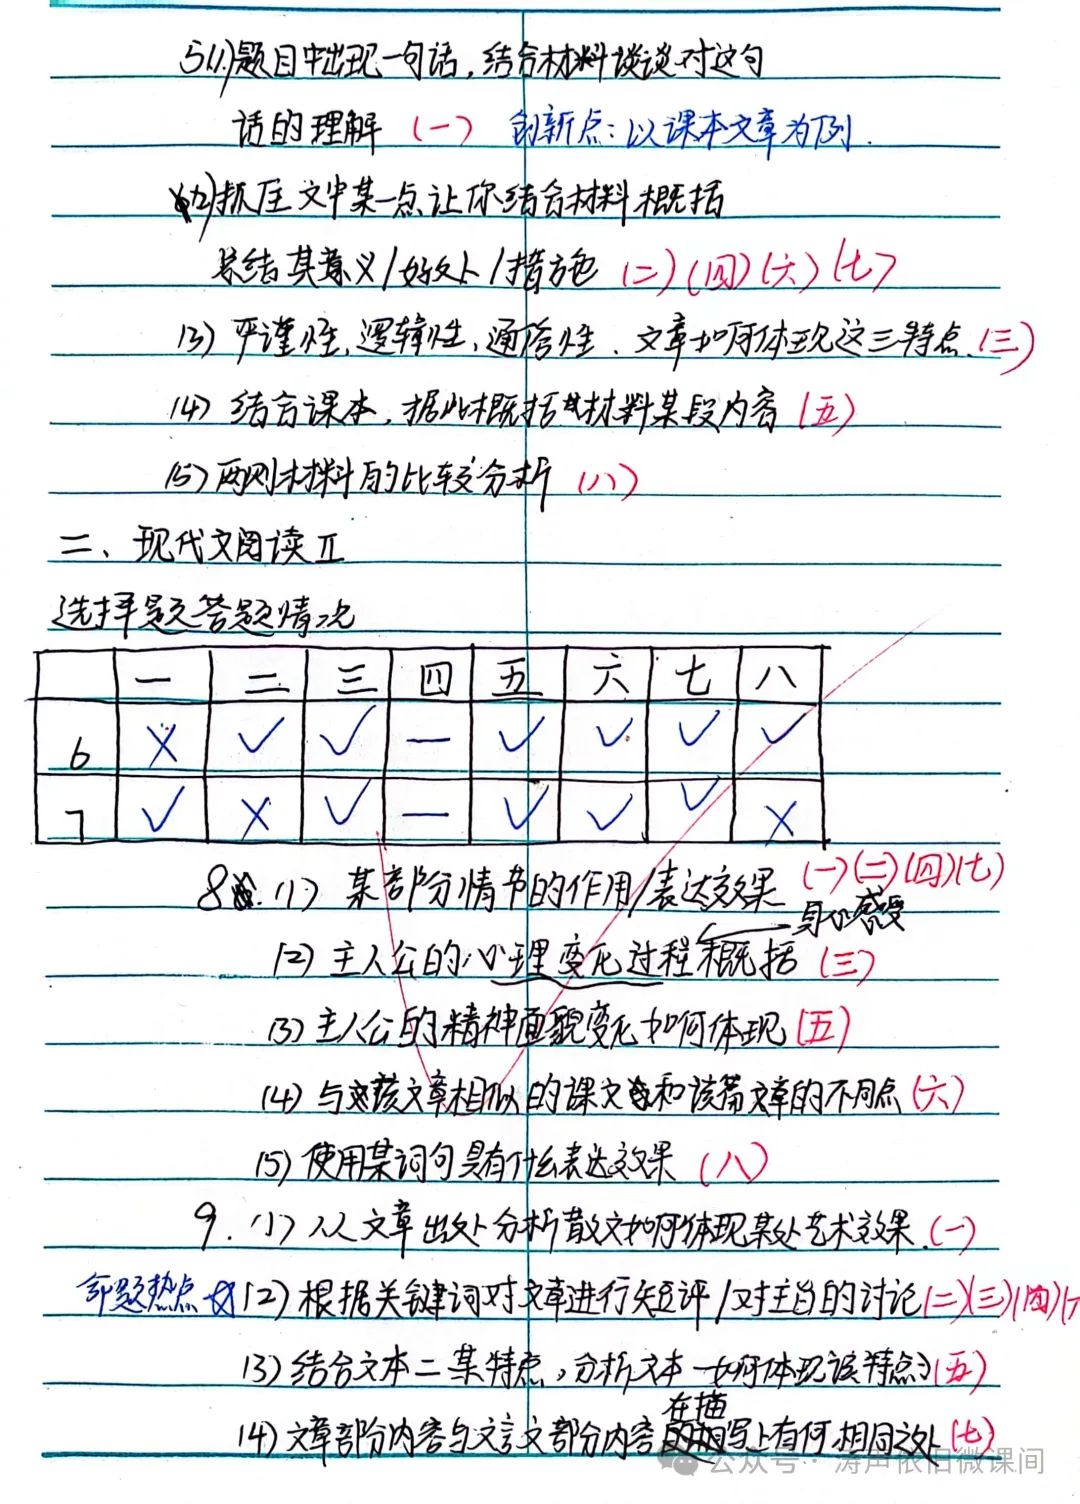 5(1)题目中出现一句话,结合材料谈谈对这句
话的理解 (一) 创新点:以课本文章为例.
(2)抓住文中某一点让你结合材料概括
总结其意义/好处/措施 (二)(四)(六)(七)
(3) 严谨性、逻辑性、通俗性.文章如何体现这三特点.(三)
(4) 结合课本,据此概括材料某段内容 (五)
(5) 两则材料的比较分析 (八)
二、现代文阅读Ⅱ
选择题答题情况
一 二 三 四 五 六 七 八
6 × ✓ ✓ — ✓ ✓ ✓ ✓
7 ✓ × ✓ — ✓ ✓ ✓ ×
8.(1) 某部分情节的作用/表达效果 (一)(二)(四)(七)
身心感受
(2) 主人公的心理变化过程概括 (三)
(3) 主人公的精神面貌变化如何体现 (五)
(4) 与该文章相似的课文和该篇文章的不同点 (六)
(5) 使用某词句具有什么表达效果 (八)
9.(1) 从文章出处分析散文如何体现某处艺术效果.(一)
命题热点 (2) 根据关键词对文章进行短评/对主旨的讨论(二)(三)(四)(
(3) 结合文本二某特点,分析文本一如何体现该特点(五)
在描
(4) 文章部分内容与文言文部分内容写上有何相同之处(七)
公众号·涛声依旧微课间